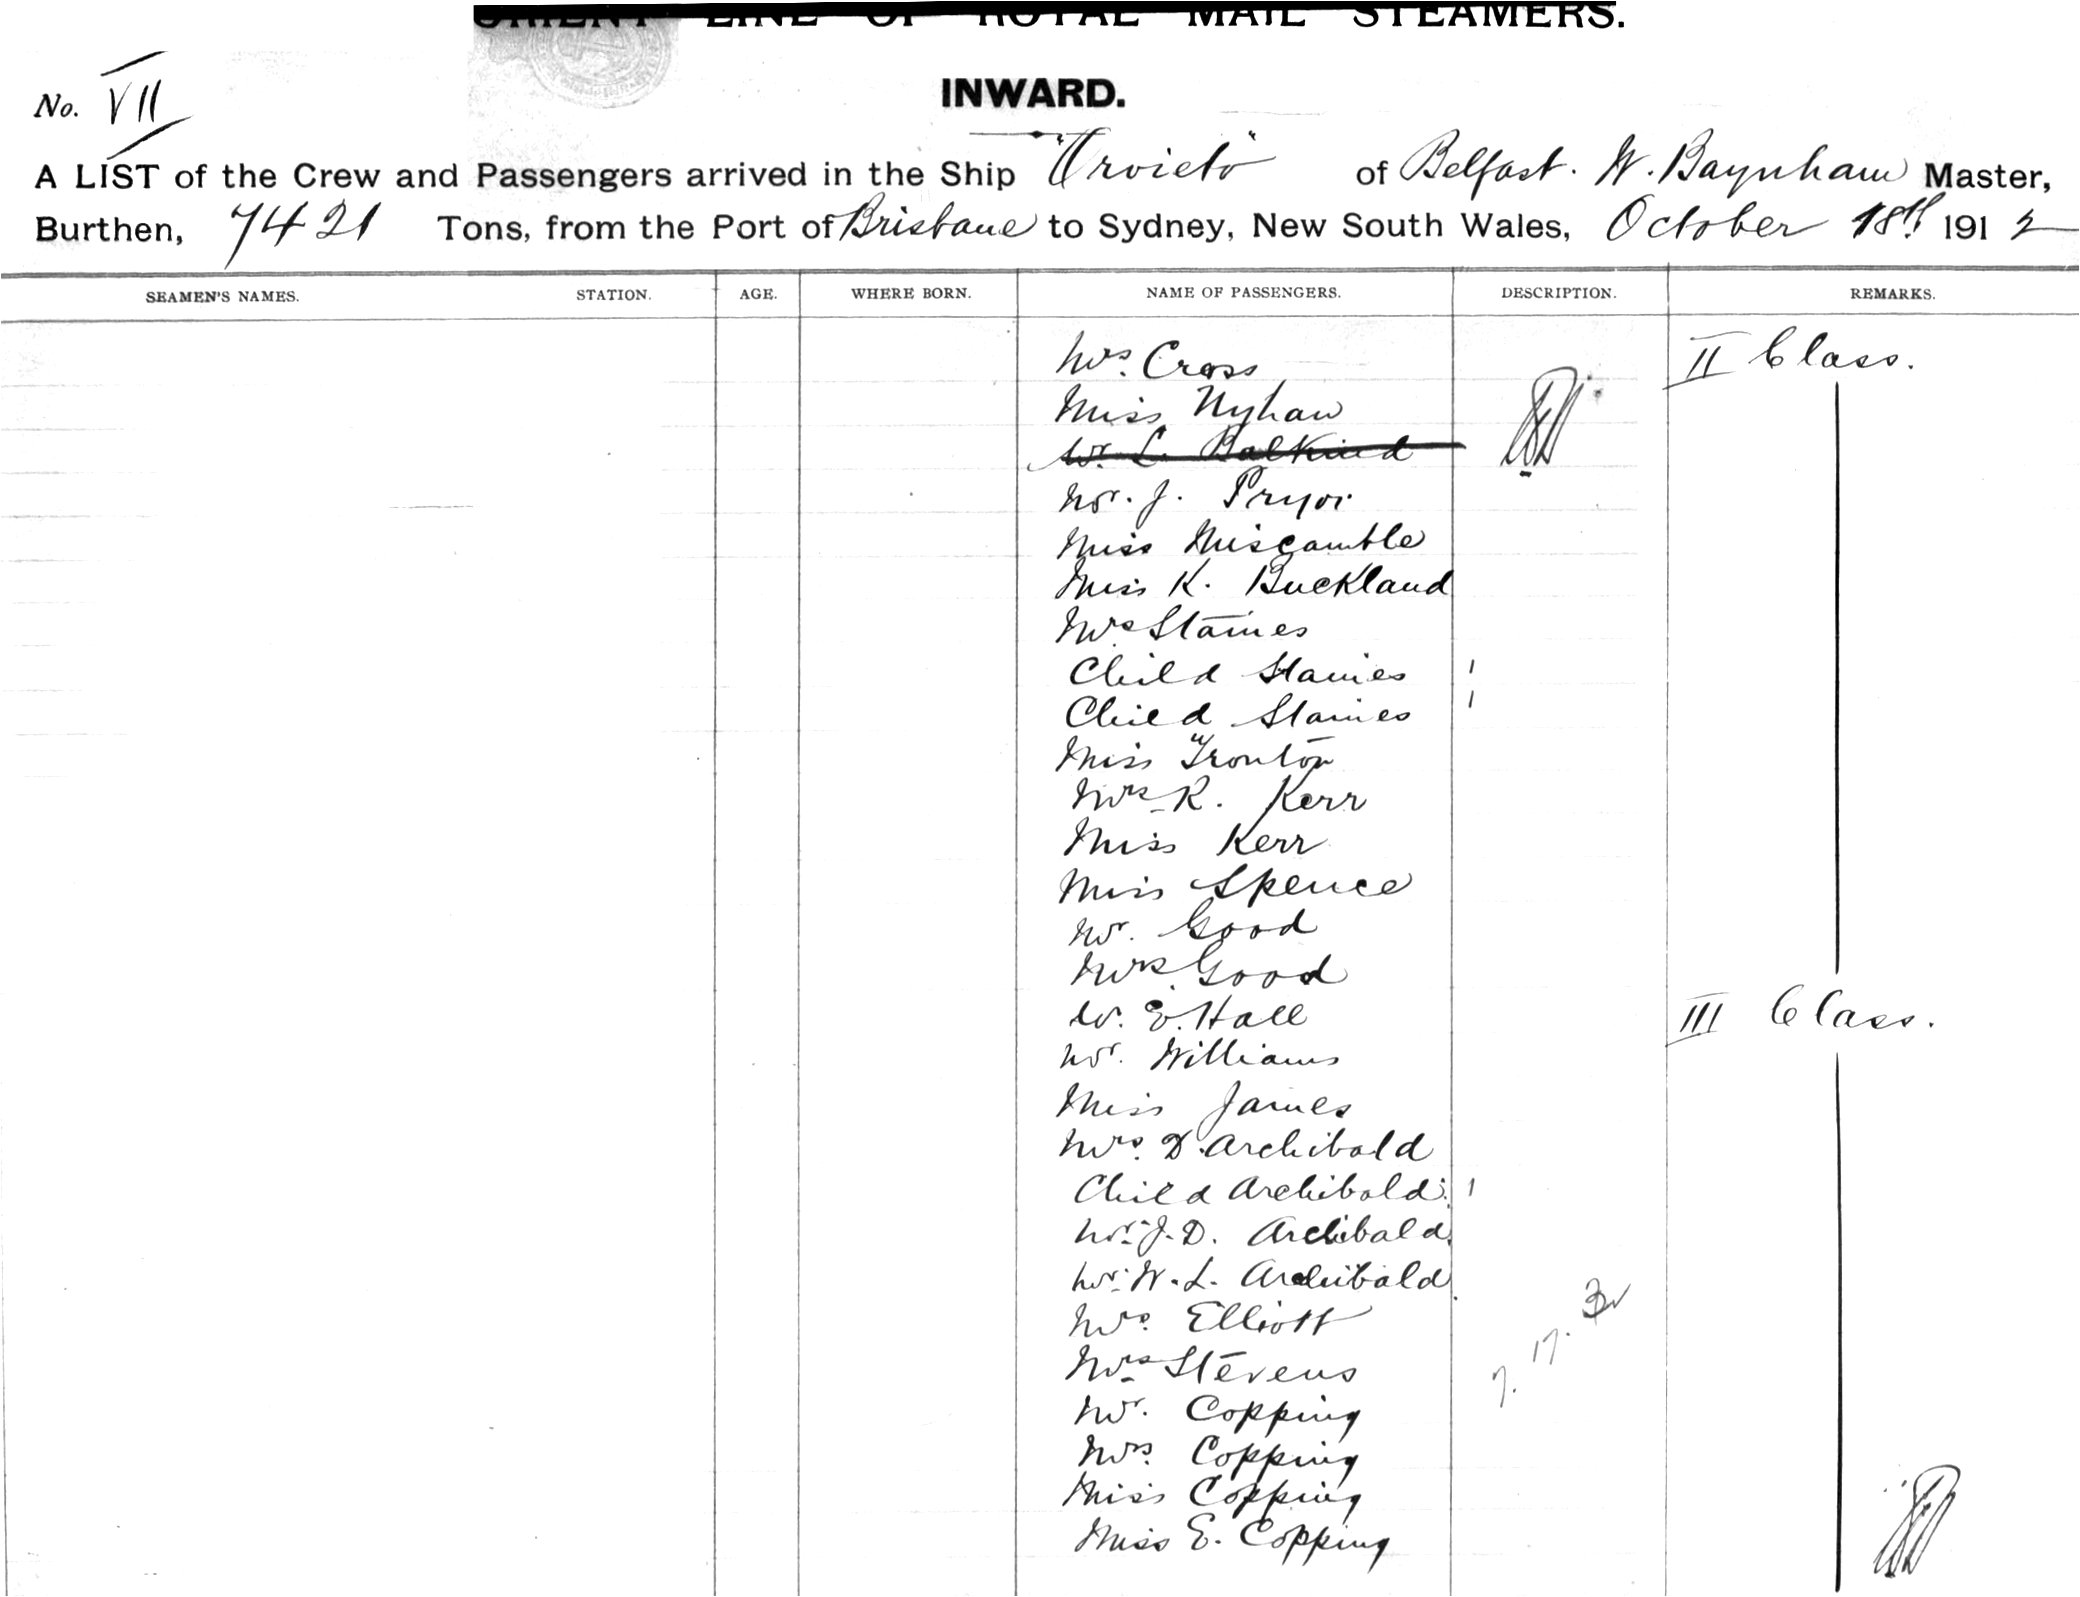 ORIENT LINE OF ROYAL MAIL STEAMERS.
INWARD.
No. VII
A LIST of the Crew and Passengers arrived in the Ship "Orvieto" of Belfast. W. Baynham Master,
Burthen, 7421 Tons, from the Port of Brisbane to Sydney, New South Wales, October 18th 1912
SEAMEN'S NAMES. STATION. AGE. WHERE BORN. NAME OF PASSENGERS. DESCRIPTION. REMARKS.
Mrs. Cross II Class.
Miss Nyhan
Mr. L. Balkind
Mr. J. Pryor
Miss Miscamble
Miss K. Buckland
Mrs Staines
Child Staines 1
Child Staines 1
Miss Tronton
Mrs R. Kerr
Miss Kerr
Miss Spence
Mr. Good
Mrs. Good
Mr. E. Hall III Class.
Mr. Williams
Miss James
Mrs. D. Archibald
Child Archibald. 1
Mr. J. D. Archibald.
Mr. W. L. Archibald.
Mrs. Elliott
Mrs Stevens
Mr. Copping
Mrs. Copping
Miss Copping
Miss E. Copping
7. 17.